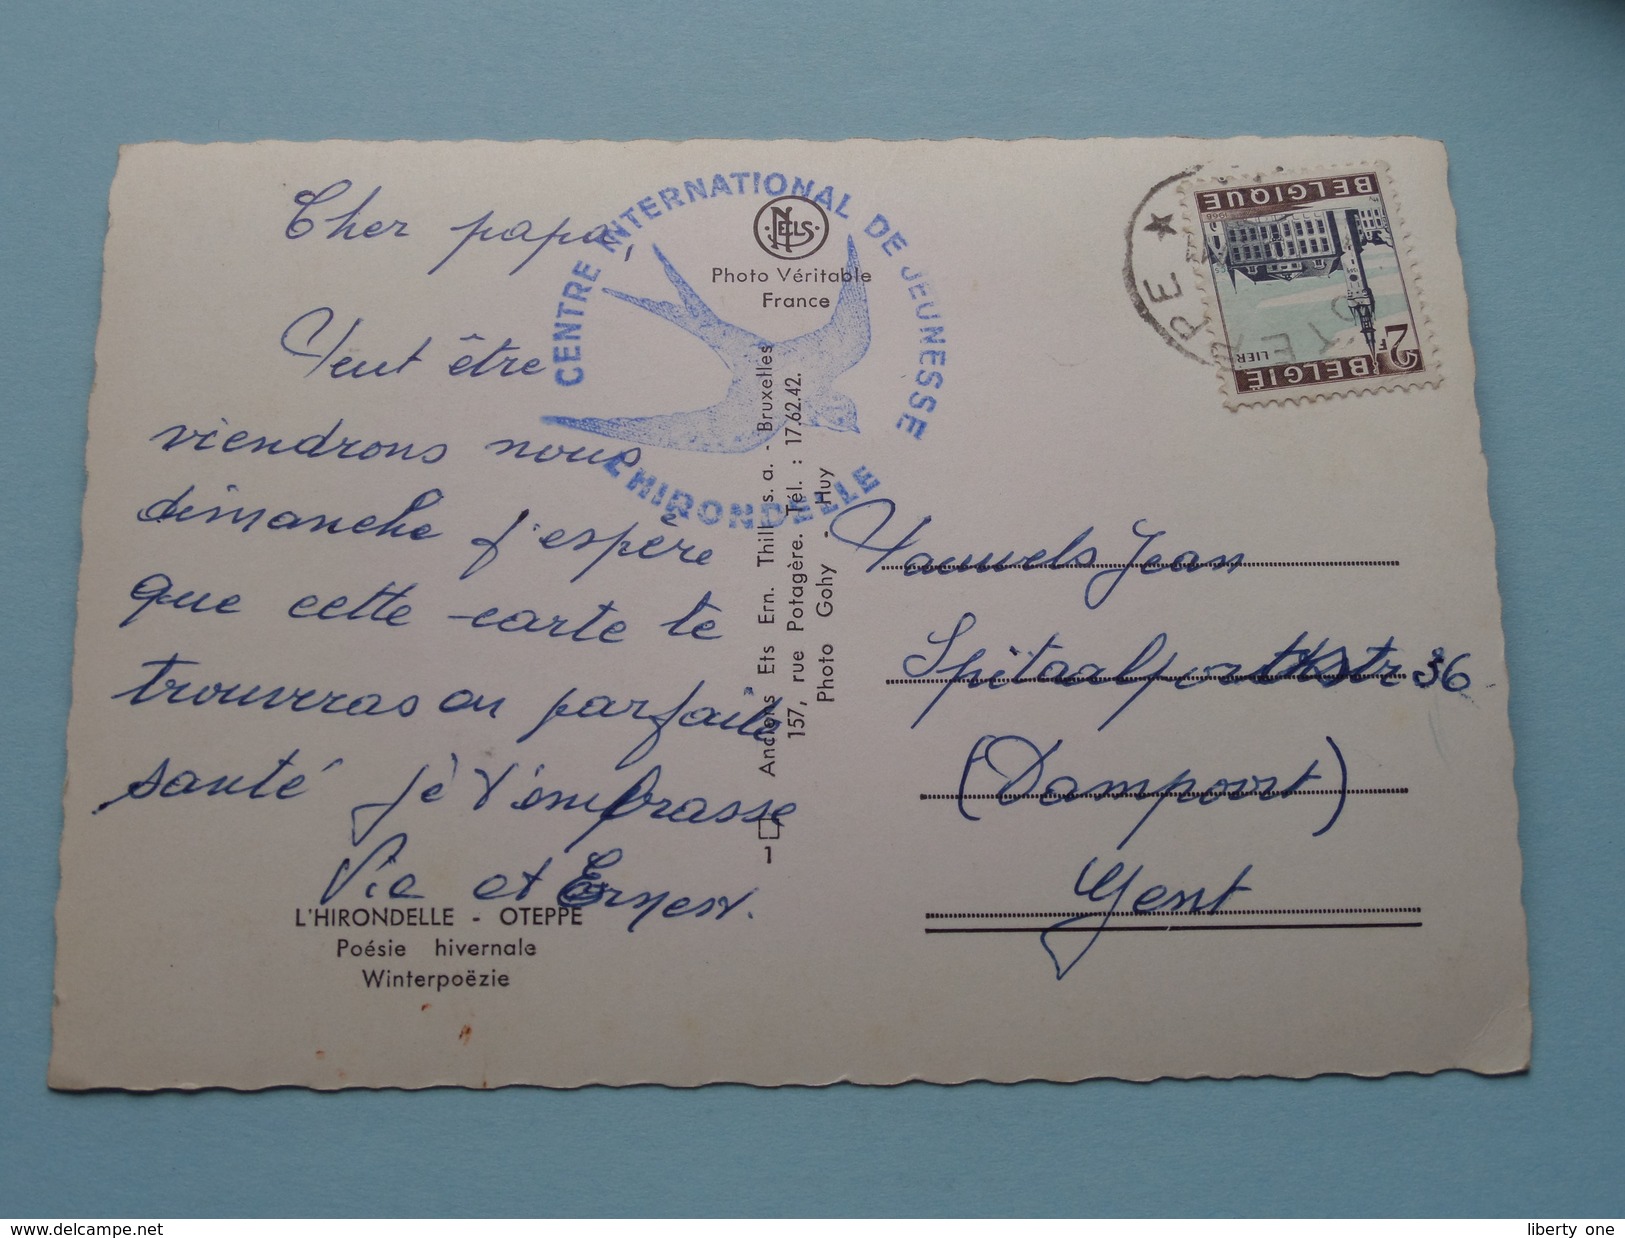 Cher papa,
Peut être
viendrons nous
dimanche j'espère
que cette carte te
trouveras en parfaite
santé je t'embrasse
Via et Ernest.
L'HIRONDELLE - OTEPPE
Poésie hivernale
Winterpoëzie
CENTRE INTERNATIONAL DE JEUNESSE
L'HIRONDELLE
NELS
Photo Véritable
France
Anciens Ets Ern. Thill s.a. - Bruxelles
157, rue Potagère. Tél. : 17.62.42.
Photo Gohy - Huy
1
BELGIQUE
1966
2F
LIER
BELGIË
Pauwels Jean
Spitaalpoortstr 36
(Dampoort)
Gent
liberty one